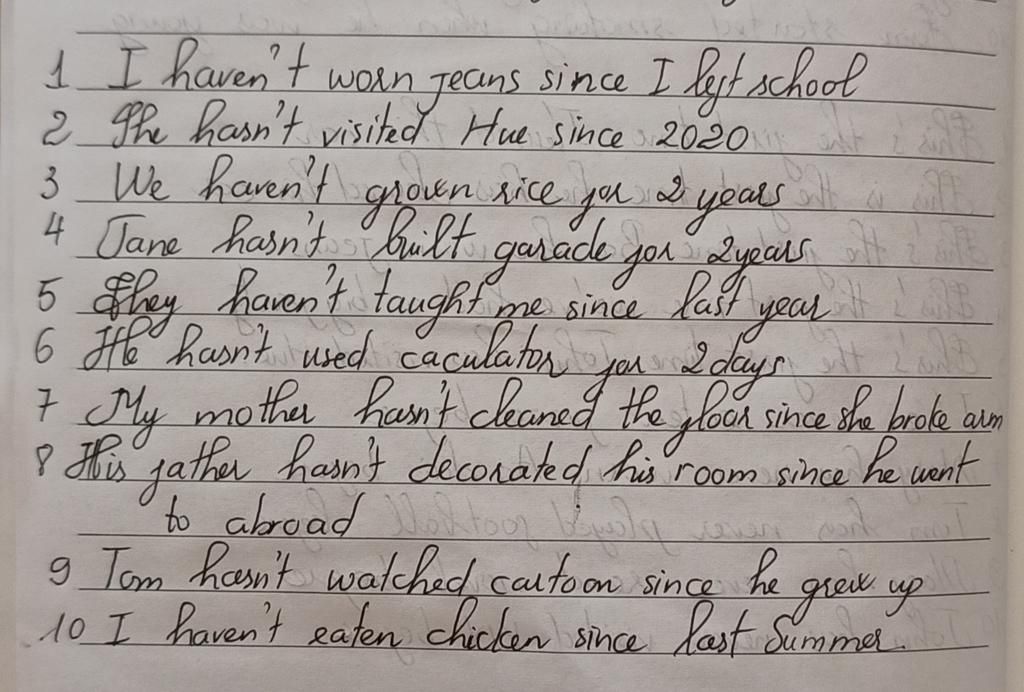 1 I haven't worn jeans since I left school
2 She hasn't visited Hue since 2020
3 We haven't grown rice for 2 years
4 Jane hasn't built garade for 2 years
5 They haven't taught me since last year
6 He hasn't used caculator for 2 days
7 My mother hasn't cleaned the floor since she broke arm
8 His father hasn't decorated his room since he went
to abroad
9 Tom hasn't watched cartoon since he grew up
10 I haven't eaten chicken since last Summer.